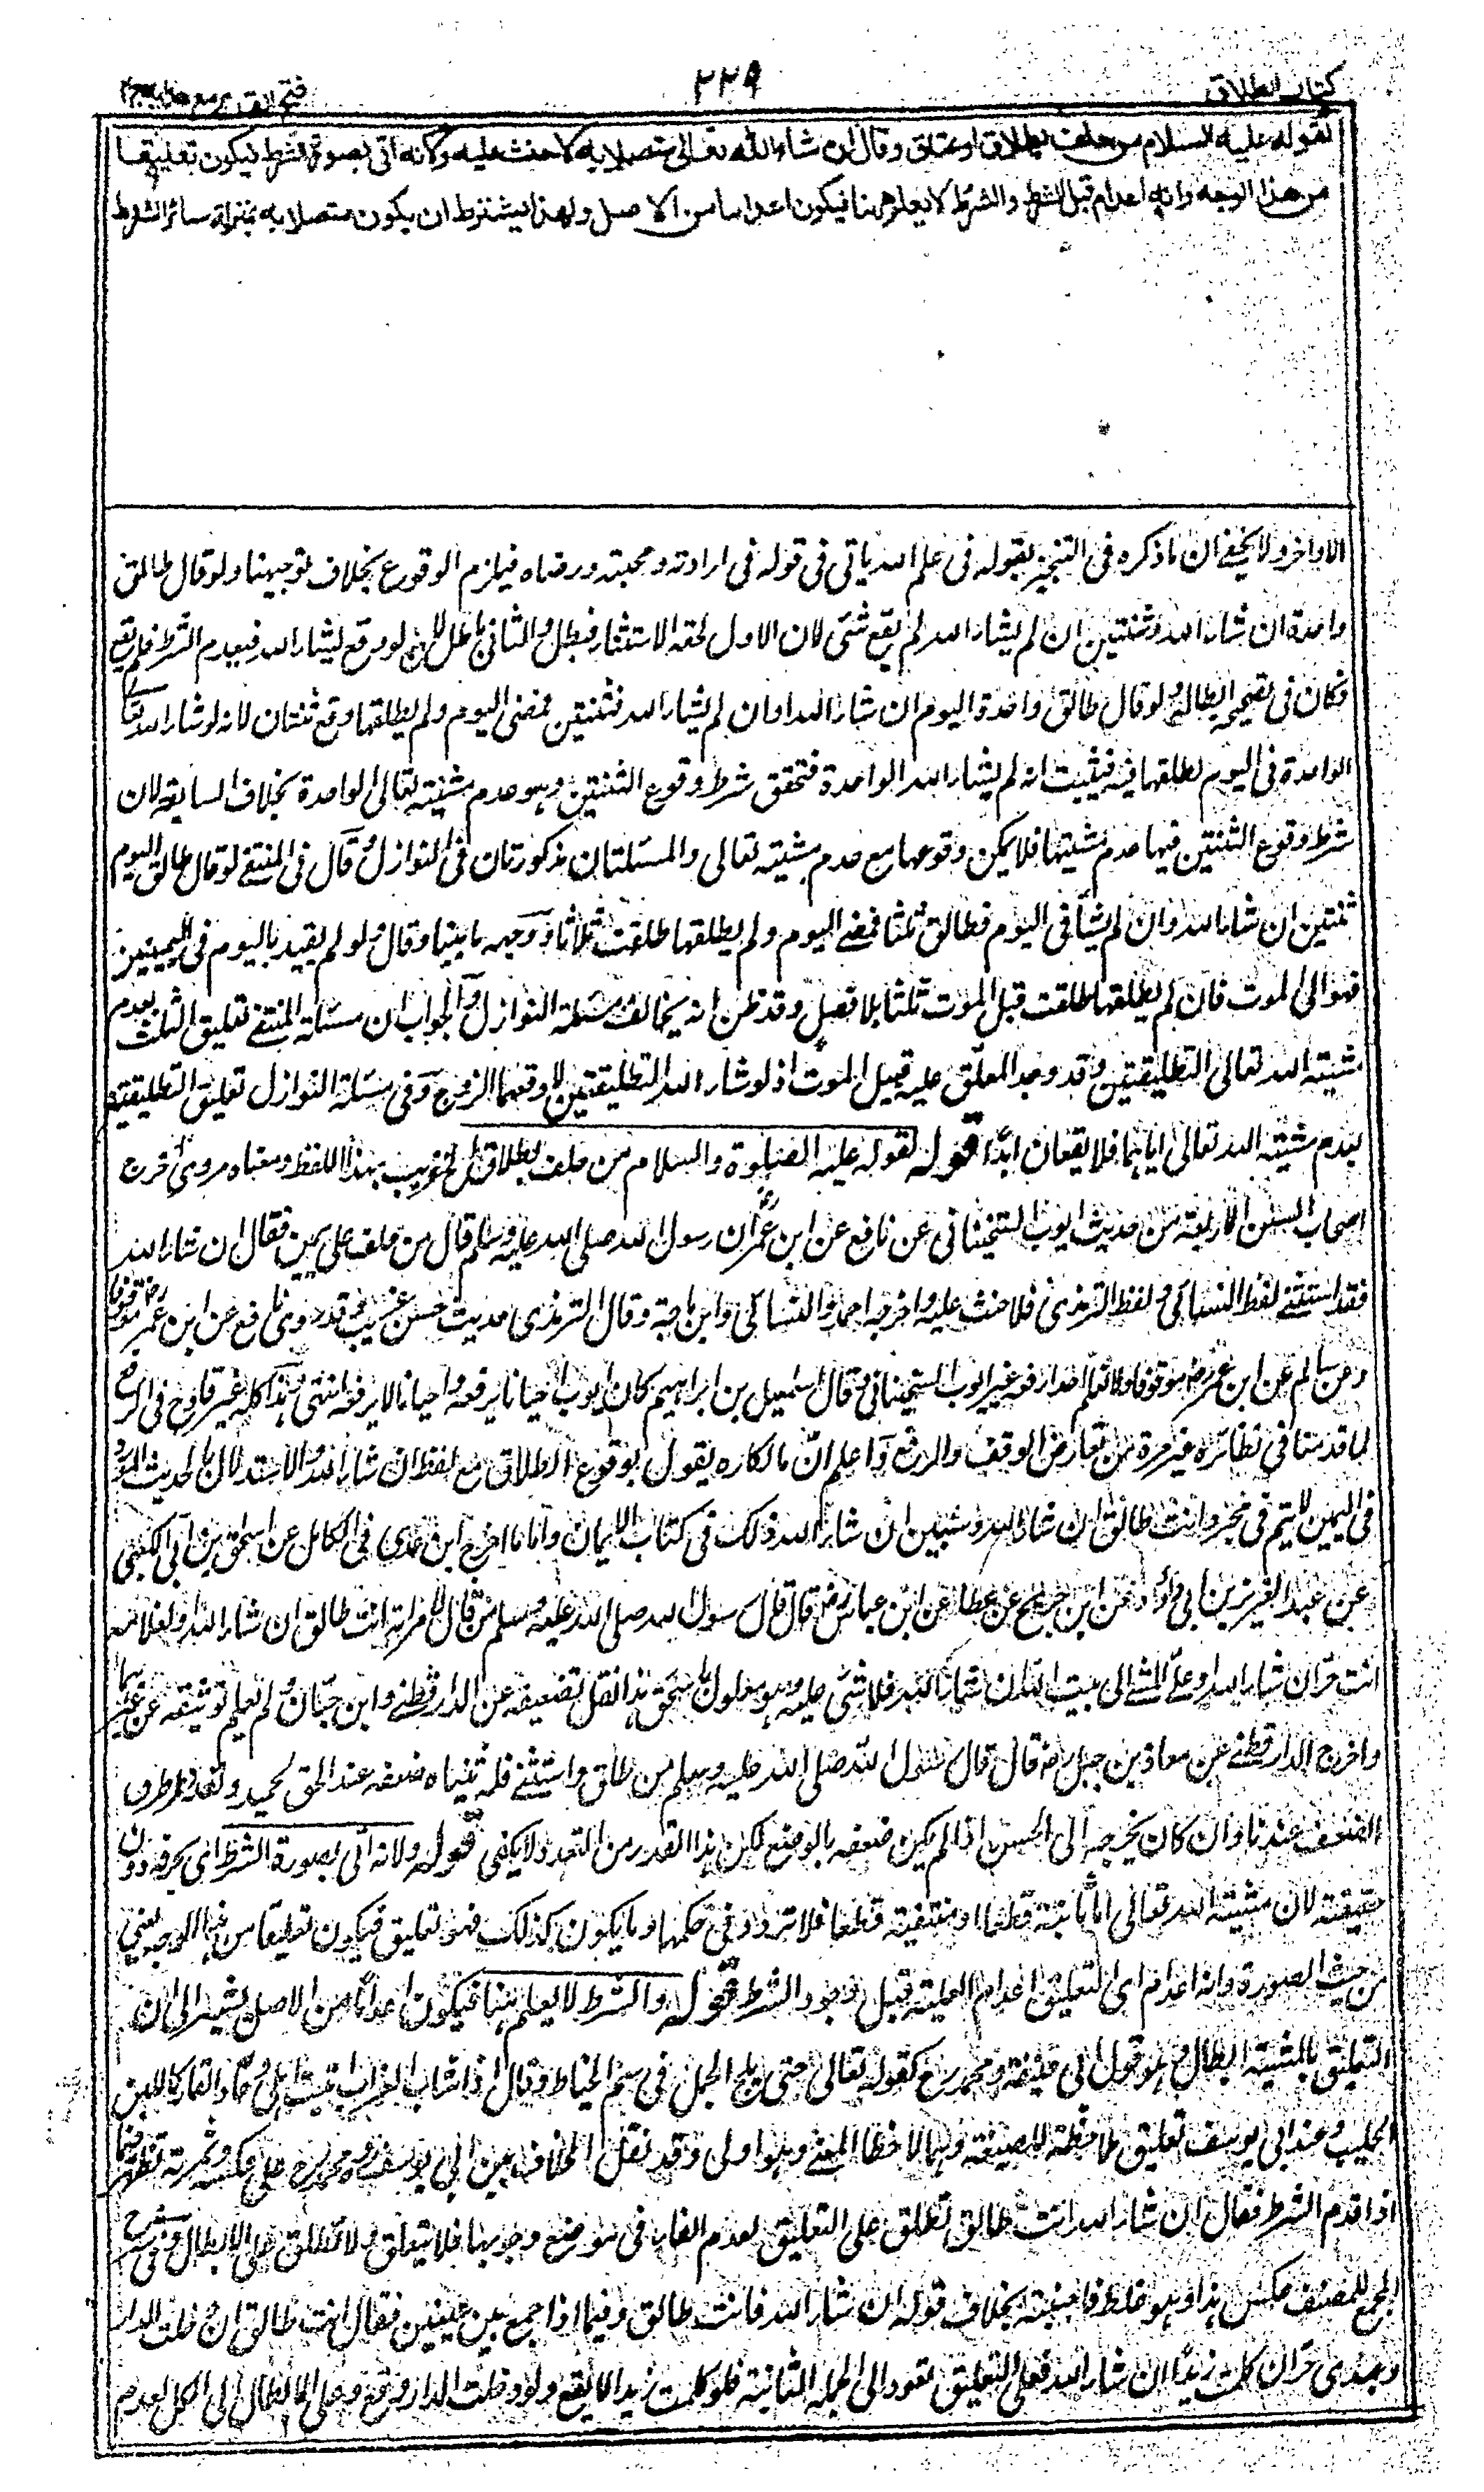 كتاب الطلاق
٢٢٩
فتح القدير مع هدايه ج٢
لقوله عليه السلام من حلف بطلاق او عتاق وقال ان شاء الله تعالى متصلا به لا حنث عليه ولانه اتى بصورة الشرط فيكون تعليقا
من هذا الوجه وانه اعدام قبل الشرط والشرط لا يعلم ههنا فيكون اعداما من الاصل ولهذا يشترط ان يكون متصلا به بمنزلة سائر الشروط
الاواخر ولا يخفى ان ما ذكره فى التنجيز بقوله فى علم الله ياتى فى قوله فى ارادته ومحبته ورضاه فيلزم الوقوع بخلاف توجيهنا ولو قال طالق
واحدة ان شاء الله وثنتين ان لم يشاء الله لم يقع شئ لان الاول لحقه الاستثناء فبطل والثانى باطل لانه لو وقع لشاء الله فيعدم الشرط فلم يقع
فكان فى تصحيحه ابطاله ولو قال طالق واحدة اليوم ان شاء الله وان لم يشاء الله فثنتين فمضى اليوم ولم يطلقها وقع ثنتان لانه لو شاء الله تعالى
الواحدة فى اليوم لطلقها فيه فيثبت انه لم يشاء الله الواحدة فتحقق شرط وقوع الثنتين وهو عدم مشيته تعالى الواحدة بخلاف السابقة لان
شرط وقوع الثنتين فيها عدم مشيتها فلا يمكن وقوعها مع عدم مشيته تعالى والمسئلتان مذكورتان فى النوازل وقال فى المنتقى لو قال طالق اليوم
ثنتين ان شاء الله وان لم يشأ فى اليوم فطالق ثلثا فمضى اليوم ولم يطلقها طلقت ثلاثا ووجهه ما بينا وقال ولو لم يقيد باليوم فى اليمينين
فهو الى الموت فان لم يطلقها طلقت قبل الموت ثلثا بلا فصل وقد ظن انه يخالف مسئلة النوازل والجواب ان مسئلة المنتقى تعليق الثلث بعدم
مشيته الله تعالى التطليقتين وقد وجد المعلق عليه قبيل الموت اذ لو شاء الله التطليقتين لاوقعهما الزوج وفى مسئلة النوازل تعليق التطليقتين
بعدم مشيته الله تعالى اياهما فلا يقعان ابدا قوله لقوله عليه الصلوة والسلام من حلف بطلاق الخ غريب بهذا اللفظ ومعناه مروى اخرج
اصحاب السنن الاربعة من حديث ايوب السختيانى عن نافع عن ابن عمر ان رسول الله صلى الله عليه وسلم قال من حلف على يمين فقال ان شاء الله
فقد استثنى لفظ النسائى ولفظ الترمذى فلا حنث عليه واخرجه احمد والنسائى وابن ماجة وقال الترمذى حديث حسن غريب وقد روى نافع عن ابن عمر رض موقوفا
وعن سالم عن ابن عمر رض موقوفا ولا نعلم احدا رفعه غير ايوب السختيانى وقال اسمعيل بن ابراهيم كان ايوب احيانا يرفعه واحيانا لا يرفعه انتهى وهذا كله غير قادح فى الرفع
لما قدمنا فى نظائره غير مرة من تعارض الوقف والرفع واعلم ان مالكا ره يقول بوقوع الطلاق مع لفظ ان شاء الله والاستدلال بالحديث المروى
فى اليمين لا يتم فى منجز وانت طالق ان شاء الله وسنبين ان شاء الله ذلك فى كتاب الايمان واما ما اخرج ابن عدى فى الكامل عن اسحق بن ابى الكعبى
عن عبد العزيز بن ابى رواد عن ابن جريج عن عطاء عن ابن عباس رض قال قال رسول الله صلى الله عليه وسلم من قال لامراته انت طالق ان شاء الله ولغلامه
انت حر ان شاء الله وعلى المشى الى بيت الله ان شاء الله فلا شئ عليه وهو معلول باسحق هذا نقل تضعيفه عن الدارقطنى وابن حبان ولم نعلم توثيقه عن غيرهما
واخرج الدارقطنى عن معاذ بن جبل رض قال قال رسول الله صلى الله عليه وسلم من طلق واستثنى فله ثنياه ضعفه عبد الحق بحميد وتعدد طرق
الضعف عندنا وان كان يخرجه الى الحسن اذا لم يكن ضعفه بالوضع لكن هذا القدر من التعدد لا يكفى قوله ولانه اتى بصورة الشرط اى بحرفه دون
حقيقته لان مشيته الله تعالى اما ثابتة قطعا او منتفية قطعا فلا تردد فى حكمها وما يكون كذلك فهو تعليق فيكون تعليقا من هذا الوجه يعنى
من حيث الصورة وانه اعدام اى التعليق اعدام العلية قبل وجود الشرط قوله والشرط لا يعلم ههنا فيكون اعداما من الاصل يشير الى ان
التعليق بالمشية ابطال وهو قول ابى حنيفة ومحمد رح كقوله تعالى حتى يلج الجمل فى سم الخياط وقال اذا شاب الغراب اتيت اهلى وعاد القار كاللبن
الحليب وعند ابى يوسف تعليق ملاحظة للصيغة وهما لاحظا المعنى وهو اولى وقد نقل الخلاف بين ابى يوسف ومحمد رح على عكسه وثمرته تظهر فيما
اذا قدم الشرط فقال ان شاء الله انت طالق تطلق على التعليق لعدم الفاء فى موضع وجوبها فلا يتعلق ولا تطلق على الابطال وفى شرح
المجمع للمصنف عكس هذا وهو غلط فاجتنبه بخلاف قوله ان شاء الله فانت طالق وفيما اذا جمع بين يمينين فقال انت طالق ان دخلت الدار
وعبدى حر ان كلمت زيدا ان شاء الله فعلى التعليق يعود الى الجملة الثانية فلو كلمت زيدا لا يقع ولو دخلت الدار وقع وعلى الابطال الى الكل لعدم